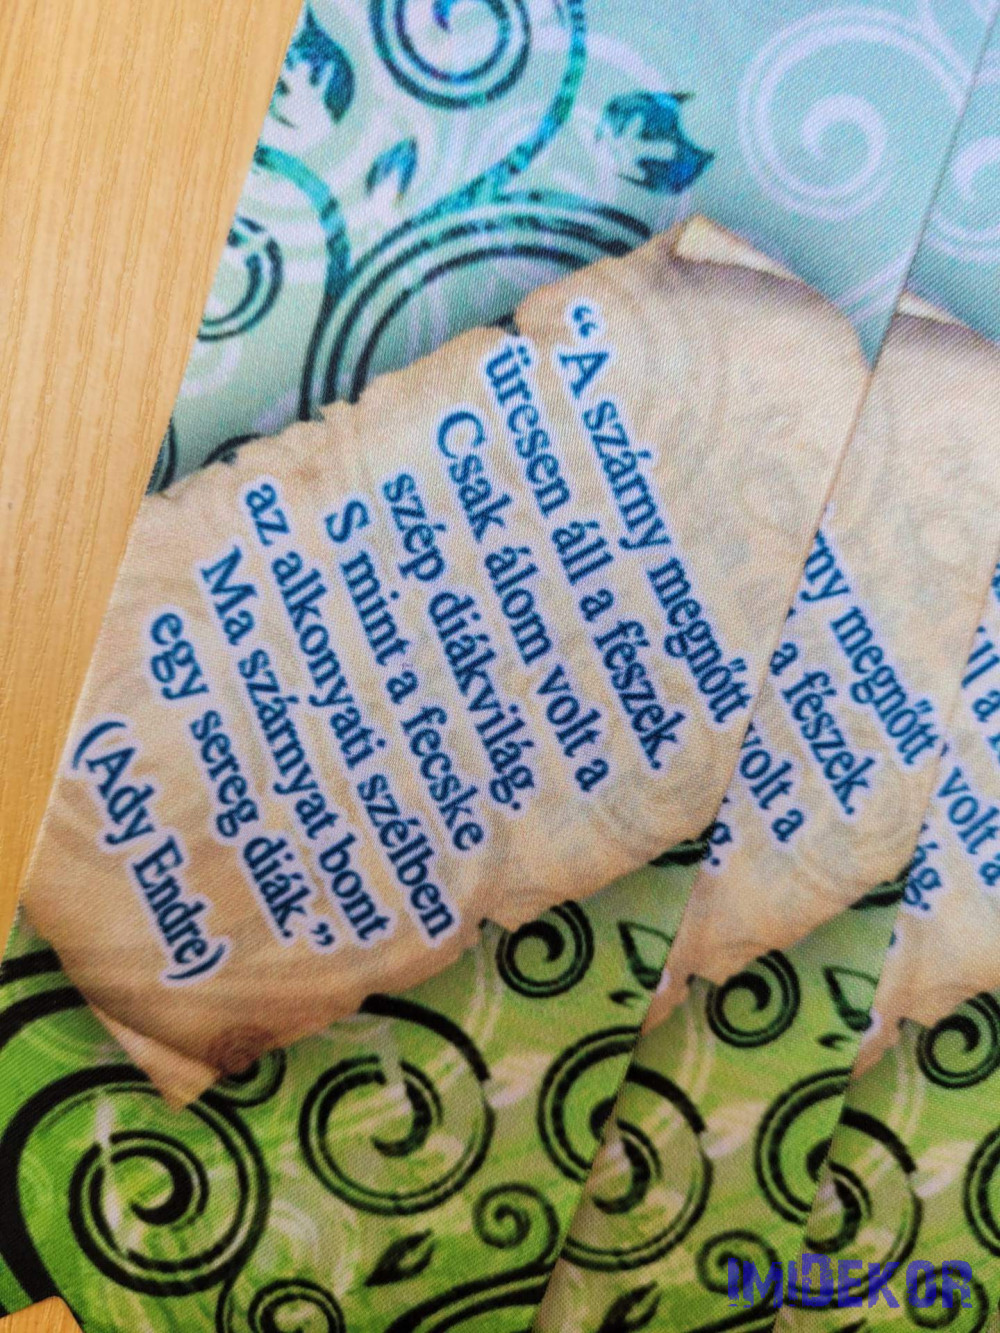 “A szárny megnőtt
üresen áll a fészek.
Csak álom volt a
szép diákvilág.
S mint a fecske
az alkonyati szélben
Ma szárnyat bont
egy sereg diák.”
(Ady Endre)
rny megnőtt
a fészek.
volt a
g.
ll a
volt a
ág.
IMIDEKOR